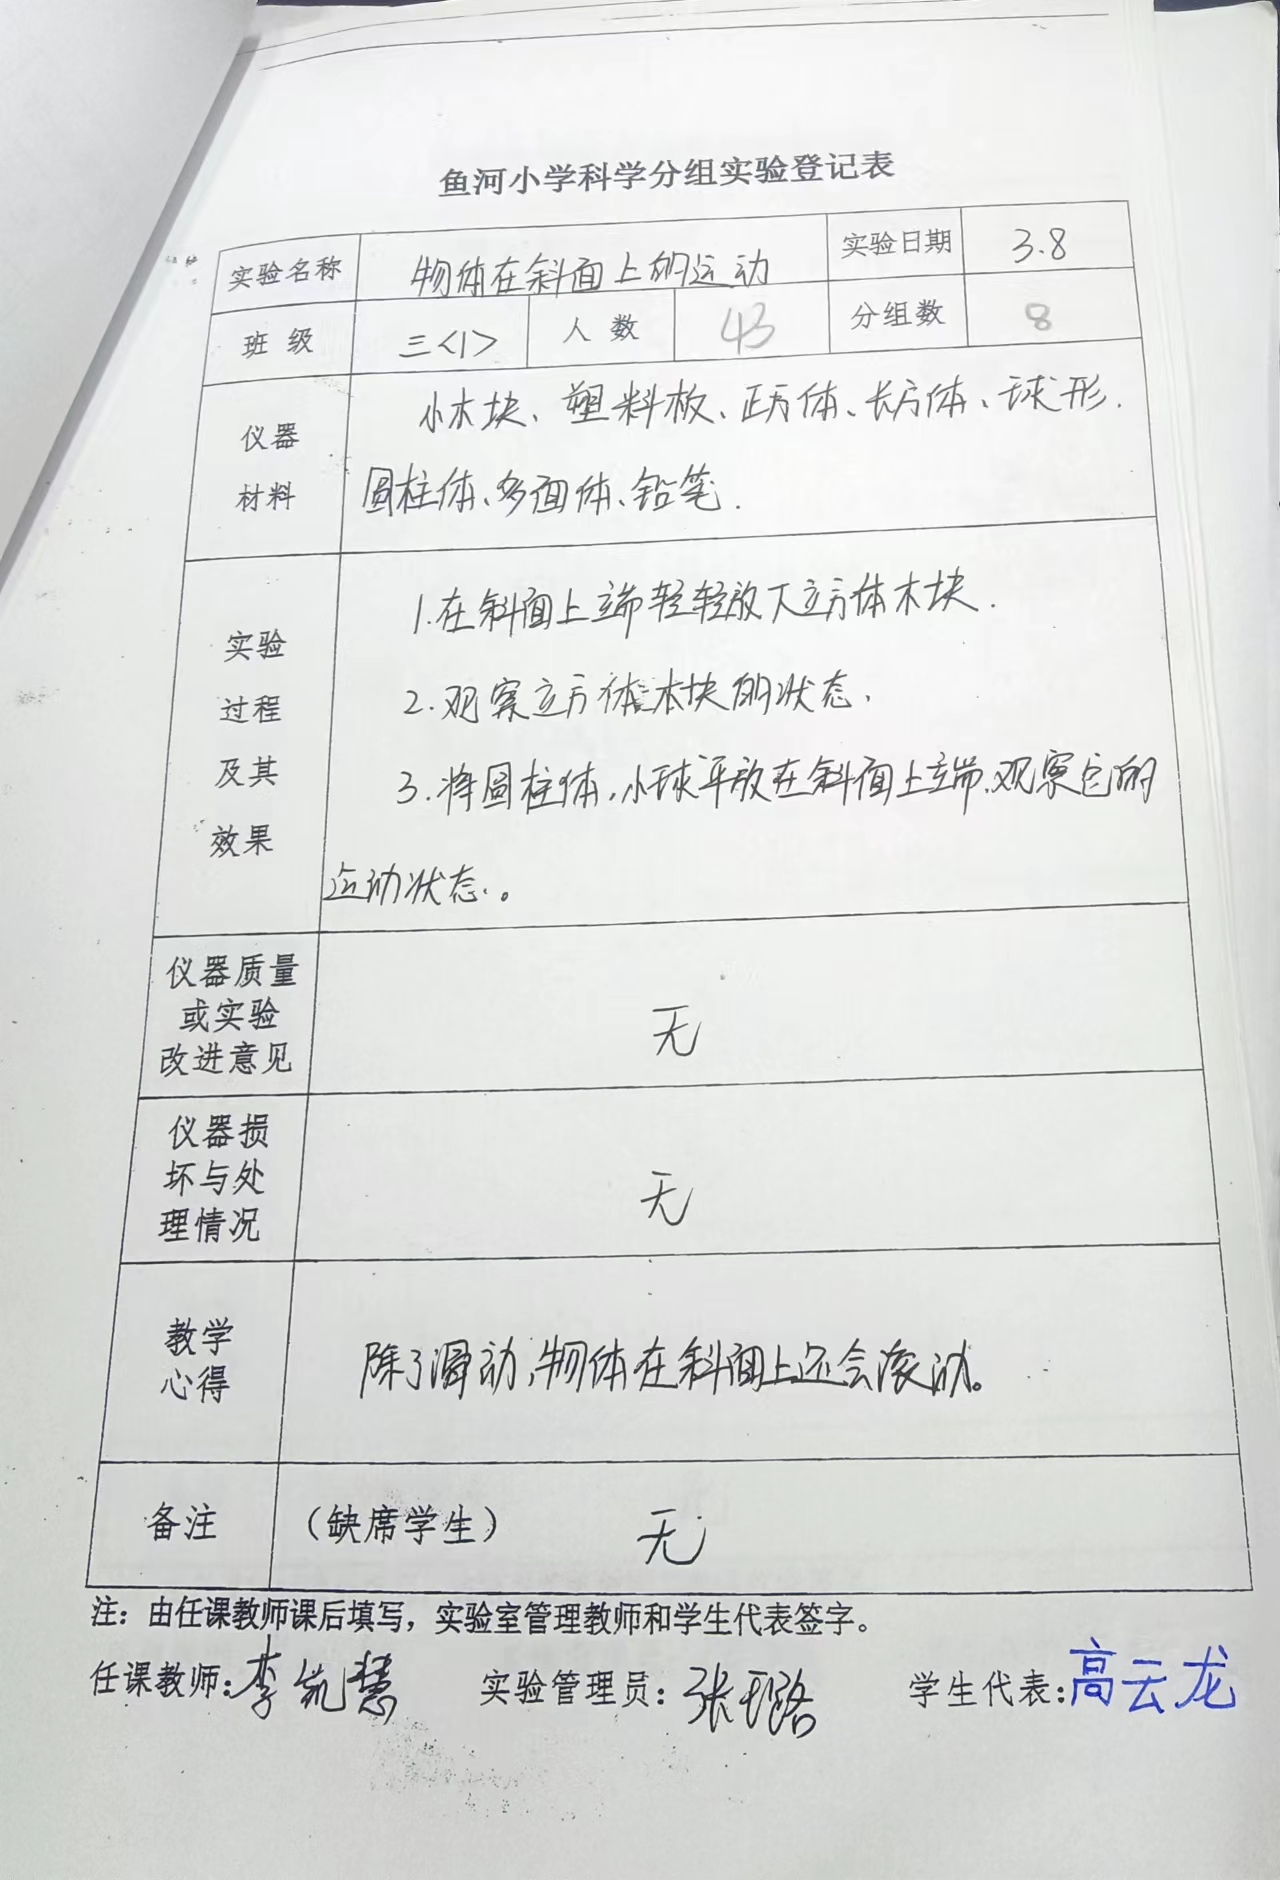 鱼河小学科学分组实验登记表
实验名称 物体在斜面上的运动 实验日期 3.8
班 级 三<1> 人 数 43 分组数 8
仪器
材料
小木块、塑料板、正方体、长方体、球形.
圆柱体、多面体、铅笔.
实验
过程
及其
效果
1.在斜面上端轻轻放下立方体木块.
2.观察立方体木块的状态.
3.将圆柱体,小球平放在斜面上端,观察它的
运动状态.。
仪器质量
或实验
改进意见
无
仪器损
坏与处
理情况
无
教学
心得
除了滑动,物体在斜面上还会滚动。
备注 (缺席学生) 无
注：由任课教师课后填写，实验室管理教师和学生代表签字。
任课教师: 李 慧 实验管理员: 张璐 学生代表: 高云龙